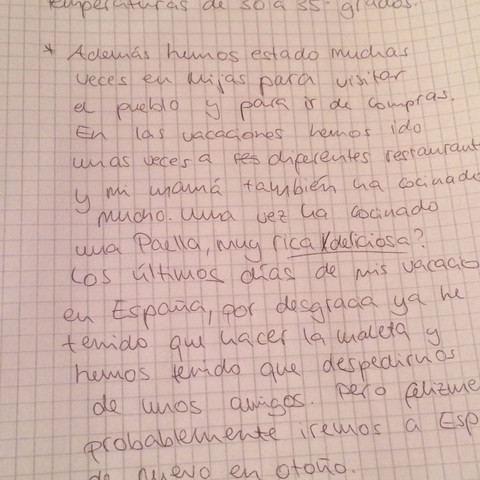 temperaturas de 30 a 35 grados.
* Además hemos estado muchas
veces en Mijas para visitar
el pueblo y para ir de compras.
En las vacaciones hemos ido
unas veces a diferentes restaurant
y mi mamá también ha cocinado
mucho. Una vez ha cocinado
una Paella, muy rica/deliciosa?
Los últimos días de mis vacacio
en España, por desgracia ya he
tenido que hacer la maleta y
hemos tenido que despedirnos
de unos amigos. Pero felizme
probablemente iremos a Esp
de nuevo en otoño.